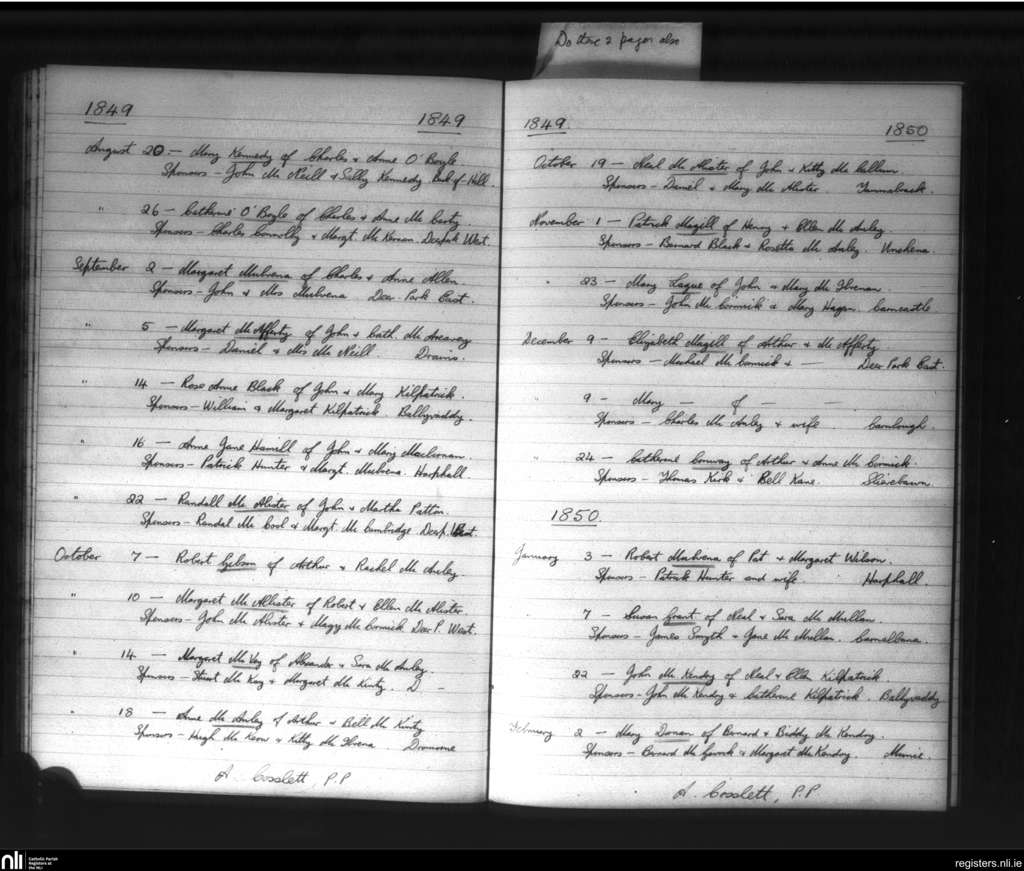 Do these 2 pages also
1849
1849
August 20 – Mary Kennedy of Charles & Anne O'Boyle.
Sponsors – John Mc Neill & Sally Kennedy. Park-of-Hall.
" 26 – Catherine O'Boyle of Charles & Anne Mc Carty.
Sponsors – Charles Connolly & Margt. Mc Kernan. Deerpark West.
September 2 – Margaret Mulvena of Charles & Anne Allen.
Sponsors – John & Mrs Mulvena Deer Park East.
" 5 – Margaret Mc Afferty of John & Cath. Mc Areavey
Sponsors – Daniel & Mrs Mc Neill. Drains.
" 14 – Rose Anne Black of John & Mary Kilpatrick.
Sponsors – William & Margaret Kilpatrick Ballyvaddy.
" 16 – Anne Jane Hamill of John & Mary
Sponsors – Patrick Hunter & Margt. Mulvena. Harphall.
" 22 – Randall Mc Alister of John & Martha Patton.
Sponsors – Randal Mc Cool & Margt. Mc Cambridge. Deerp.
October 7 – Robert Gibson of Arthur & Rachel Mc Auley.
" 10 – Margaret Mc Allister of Robert & Ellen Mc Alister.
Sponsors – John Mc Alister & Maggy Mc Cormick Deer P. West.
" 14 – Margaret Mc Kay of Alexander & Sara Mc Auley.
Sponsors – Stuart Mc Kay & Margaret Mc Kinty. D –
" 18 – Anne Mc Auley of Arthur & Bell Mc Kinty
Sponsors – Hugh Mc Keow & Kitty Mc Ilvena.
A. Cosslett, P.P
1849.
1850
October 19 – Neal Mc Alister of John & Kitty Mc Callum.
Sponsors – Daniel & Mary Mc Alister.
November 1 – Patrick Magill of Henry & Ellen Mc Auley.
Sponsors – Bernard Black & Rosetta Mc Auley. Unshena.
" 23 – Mary Lague of John & Mary Mc Ilvenan.
Sponsors – John Mc Cormick & Mary Hagan. Carncastle
December 9 – Elizabeth Magill of Arthur & Mc Afferty.
Sponsors – Michael Mc Cormick & — Deer Park East.
" 9 – Mary — of — —
Sponsors – Charles Mc Auley & wife. Carnlough
" 24 – Catherine Conway of Arthur & Anne Mc Cormick.
Sponsors – Thomas Kirk & Bell Kane. Slievebawn.
1850.
January 3 – Robert Mulvena of Pat & Margaret Wilson.
Sponsors – Patrick Hunter and wife. Harphall.
7 – Susan Grant of Neal & Sara Mc Mullan.
Sponsors – James Smyth & Jane Mc Mullan. Carnalbana.
22 – John Mc Kendry of Neal & Ellen Kilpatrick.
Sponsors – John Mc Kendry & Catherine Kilpatrick. Ballyvaddy
February 2 – Mary Donan of Bernard & Biddy Mc Kendry.
Sponsors – Bernard Mc & Margaret Mc Kendry. Munie.
A. Cosslett, P.P
nli
Catholic Parish
Registers at
the NLI
registers.nli.ie